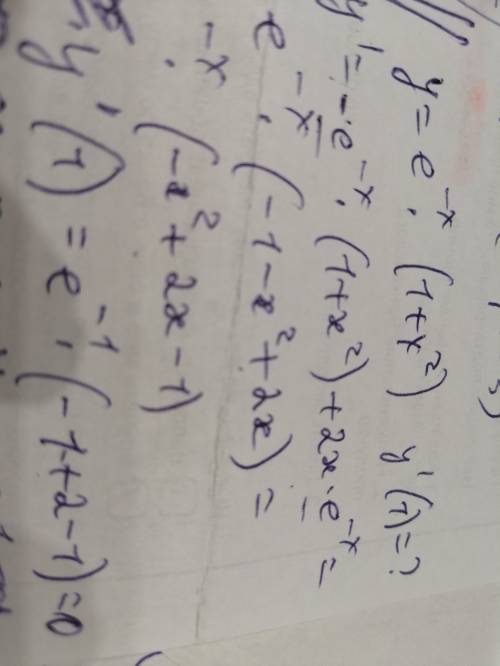 y = e^{-x} · (1+x²) y'(1)=?
y' = -e^{-x} · (1+x²)+2x·e^{-x} =
e^{-x} · (-1-x²+2x) =
-x · (-x²+2x-1)
y'(1) = e^{-1} · (-1+2-1)=0